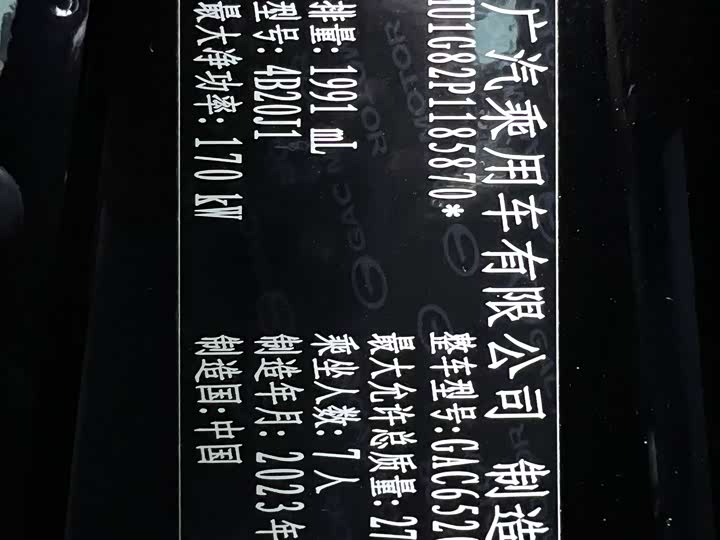 广汽乘用车有限公司 制造
MU1G82P1185870*
整车型号:GAC652
最大允许总质量:27
排量:1991 mL
乘坐人数:7人
型号:4B20J1
制造年月:2023年
最大净功率:170kW
制造国:中国